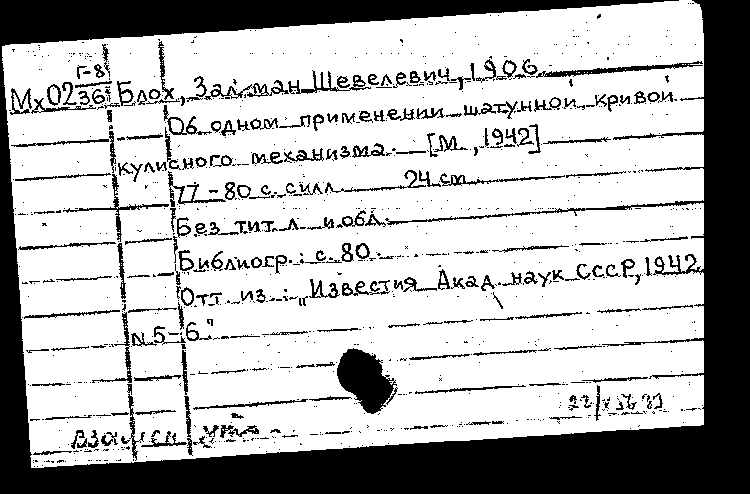 Мх02 Г-8/36 Блох, Залман Шевелевич, 1906
Об одном применении шатунной кривой
кулисного механизма. [М, 1942]
77-80 с. с илл. 24 cm
Без тит. л. и обл.
Библиогр.: с. 80.
Отт. из: „Известия Акад. наук СССР, 1942
N 5-6"
взамен